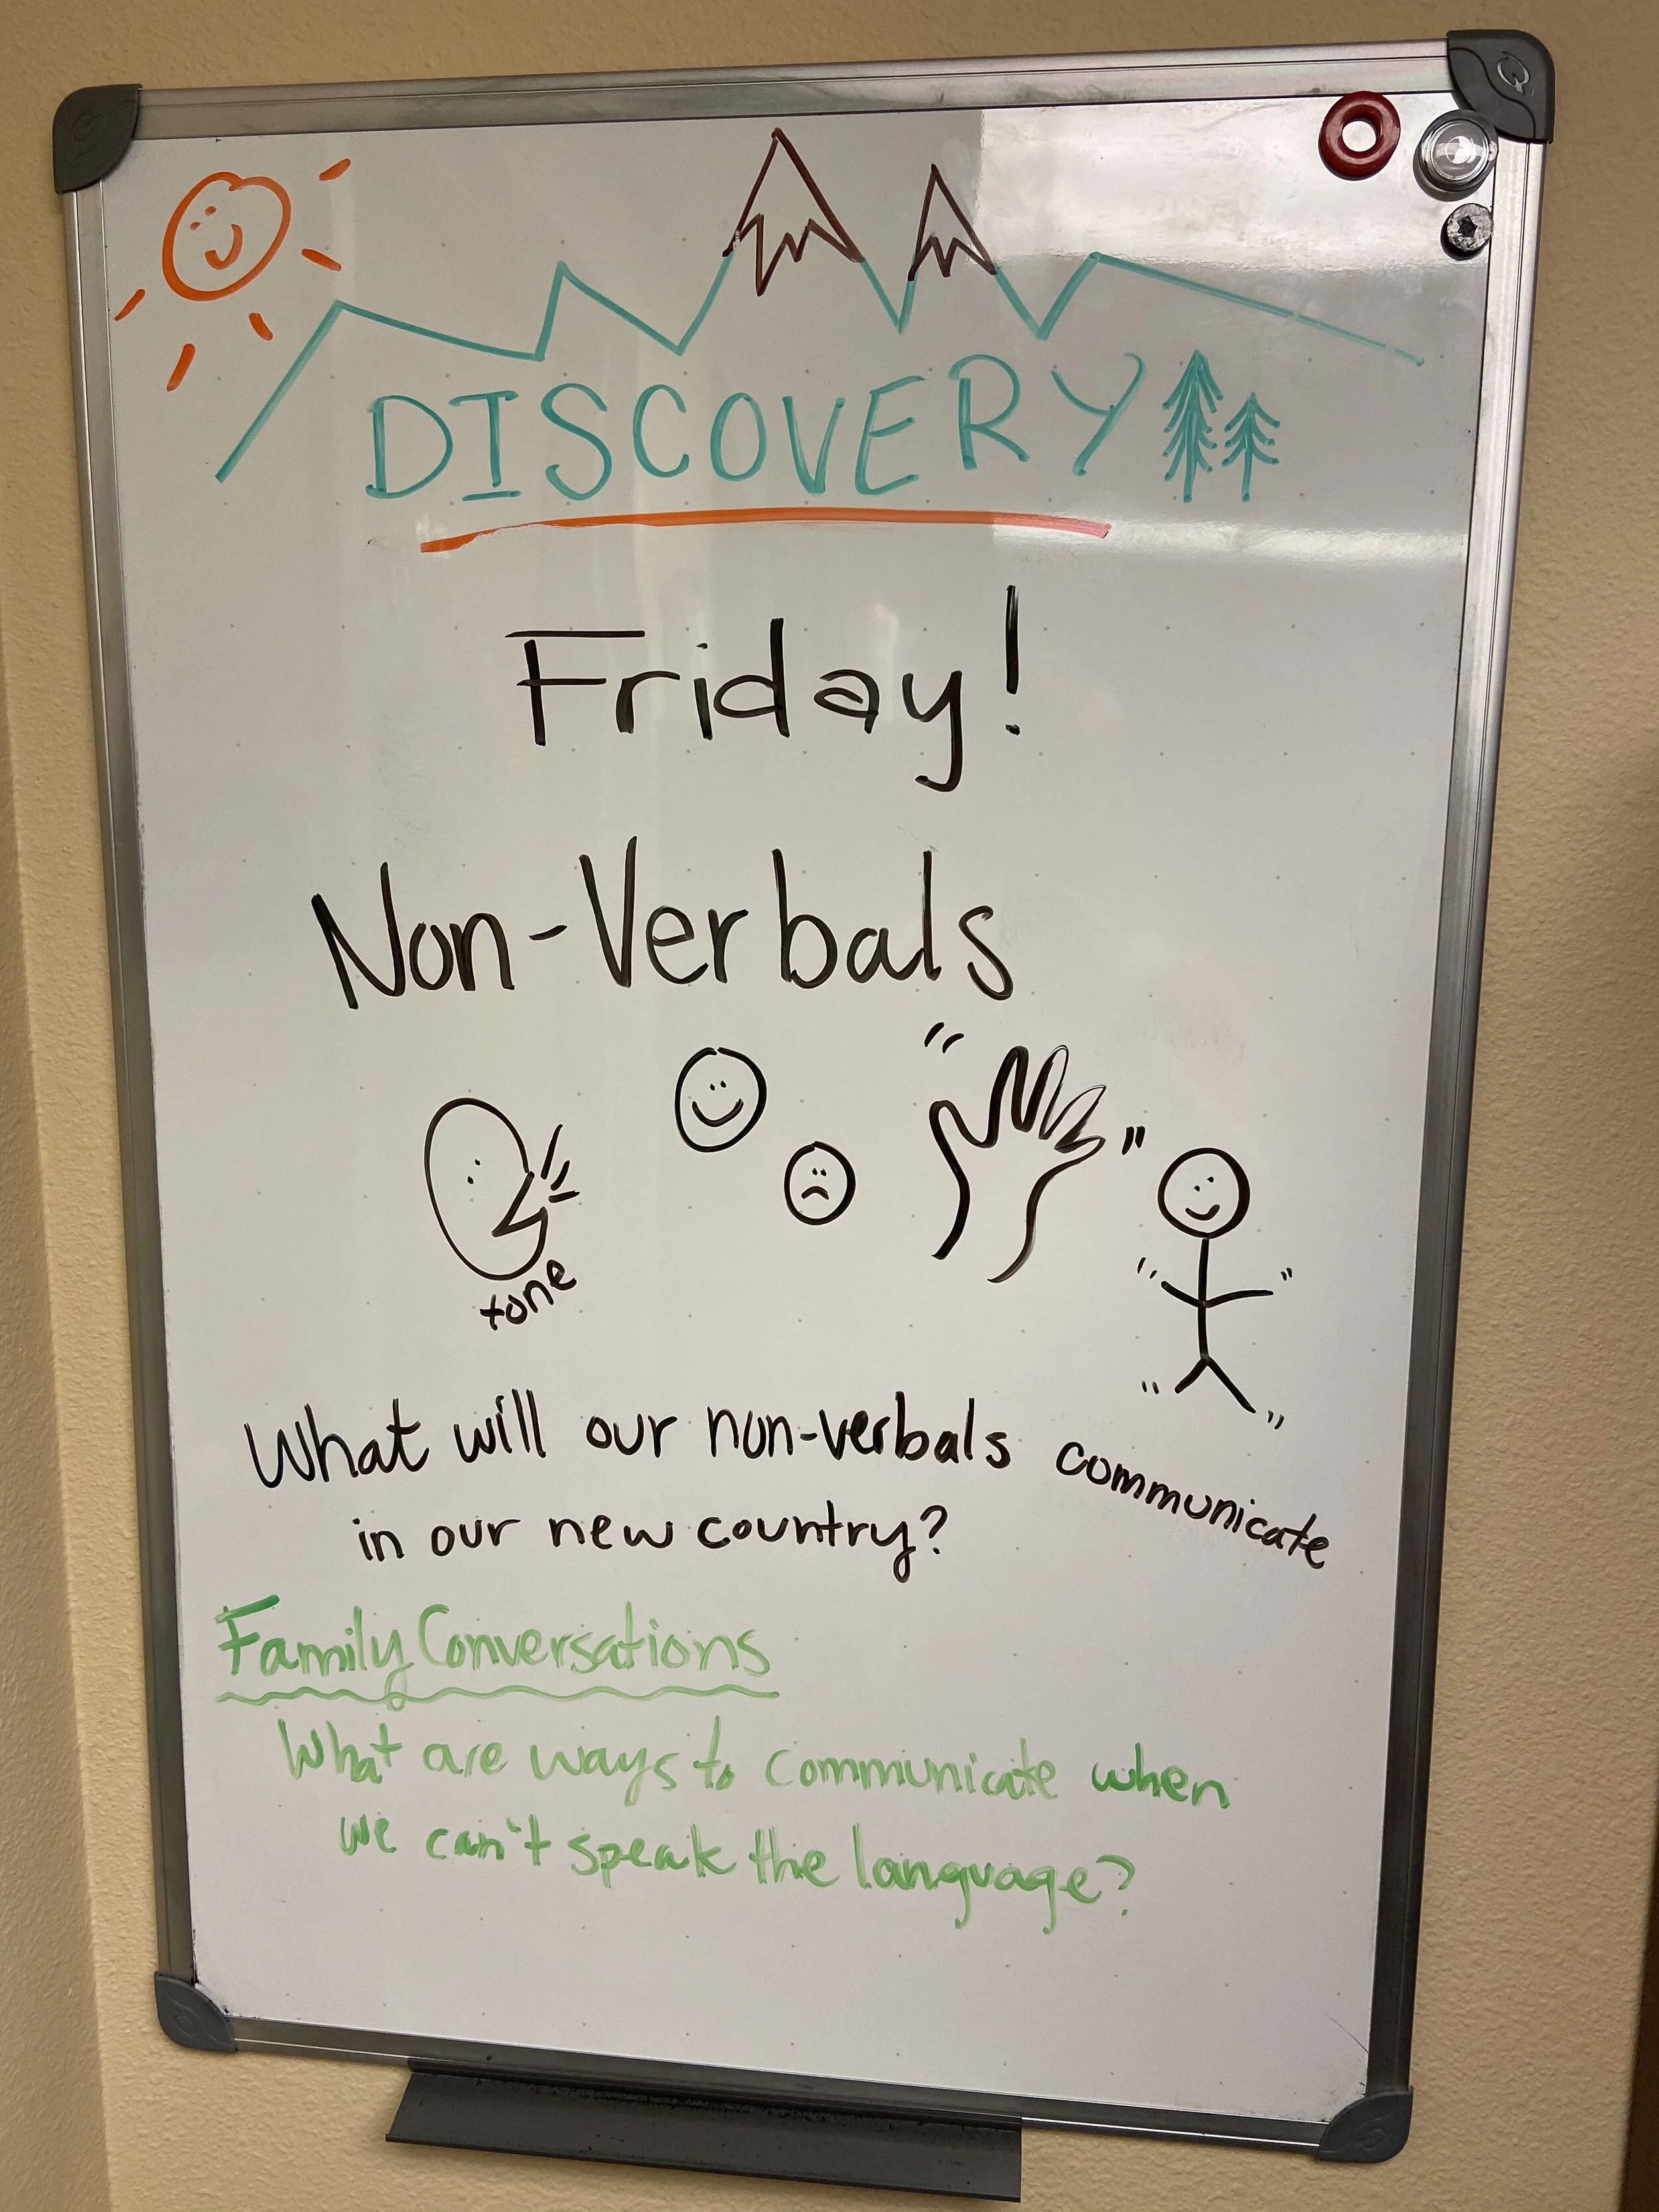 DISCOVERY
Friday!
Non-Verbals
tone
What will our non-verbals communicate
in our new country?
Family Conversations
What are ways to communicate when
we can't speak the language?